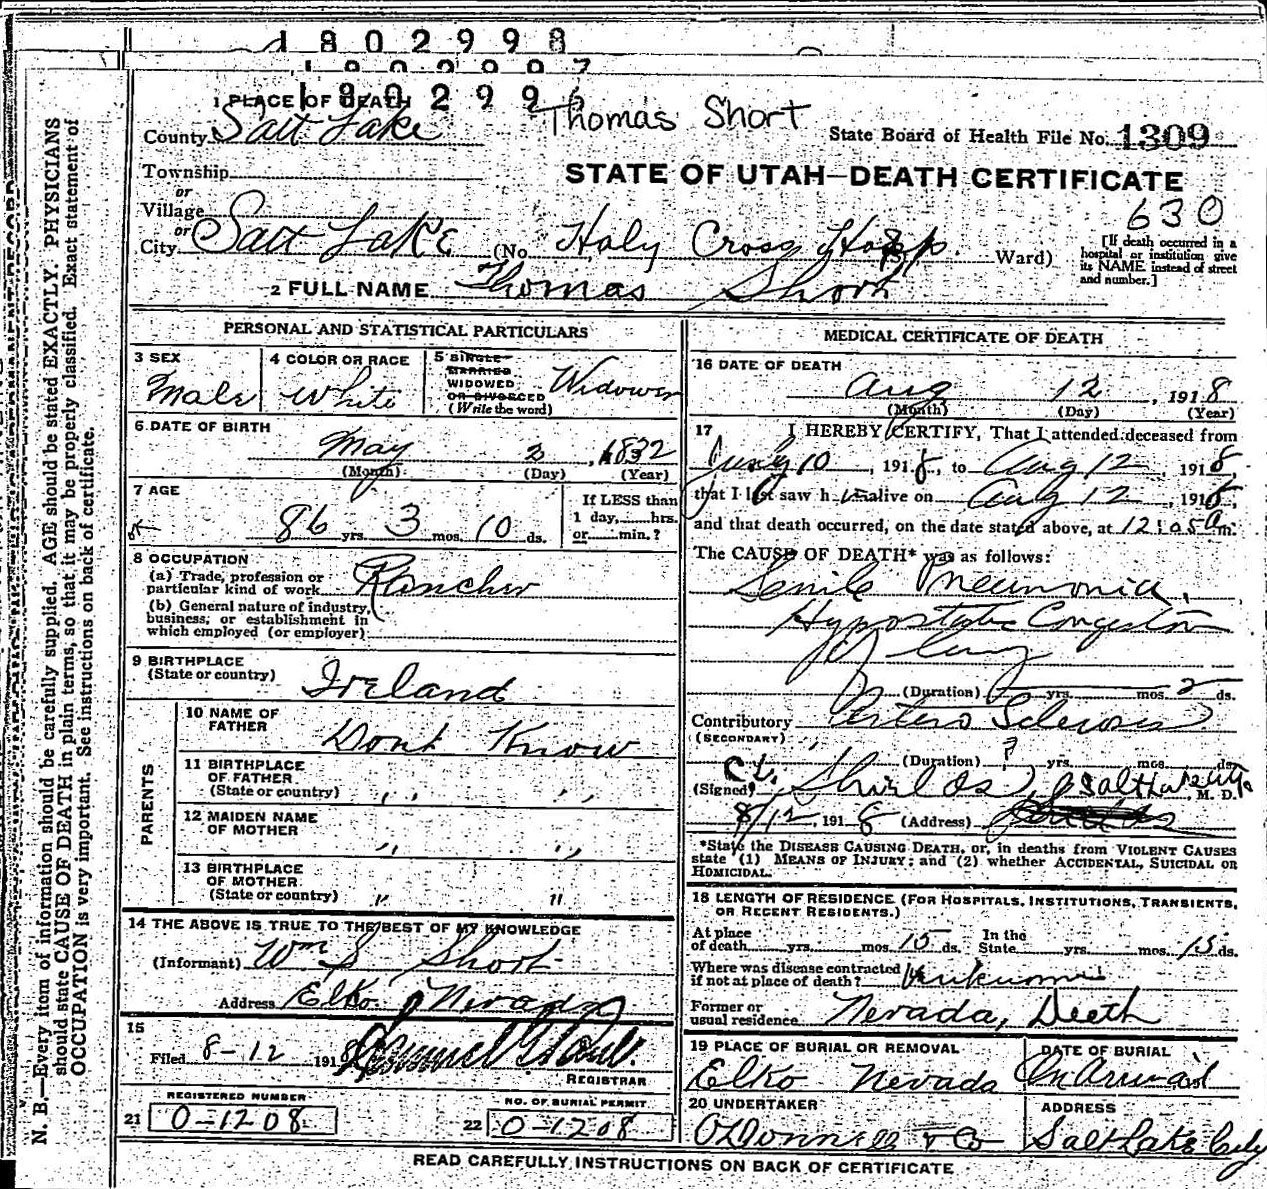 1802998
1802997
1802996
1 PLACE OF DEATH
Thomas Short
County Salt Lake
State Board of Health File No. 1309
Township
STATE OF UTAH—DEATH CERTIFICATE
or
Village
630
or
City Salt Lake (No Holy Cross Hosp. St. Ward)
[If death occurred in a hospital or institution give its NAME instead of street and number.]
2 FULL NAME Thomas Short
PERSONAL AND STATISTICAL PARTICULARS
3 SEX Male
4 COLOR OR RACE White
5 SINGLE MARRIED WIDOWED OR DIVORCED (Write the word) Widower
6 DATE OF BIRTH
May 2, 1832
(Month) (Day) (Year)
7 AGE
86 yrs. 3 mos. 10 ds.
If LESS than 1 day, hrs. or min.?
8 OCCUPATION
(a) Trade, profession or particular kind of work Rancher
(b) General nature of industry, business, or establishment in which employed (or employer)
9 BIRTHPLACE
(State or country) Ireland
PARENTS
10 NAME OF FATHER Dont Know
11 BIRTHPLACE OF FATHER (State or country) " "
12 MAIDEN NAME OF MOTHER " "
13 BIRTHPLACE OF MOTHER (State or country) " "
14 THE ABOVE IS TRUE TO THE BEST OF MY KNOWLEDGE
(Informant) Wm S Short
Address Elko Nevada
15
Filed 8-12 1918
REGISTRAR
REGISTERED NUMBER
21 0-1208
NO. OF BURIAL PERMIT
22 0-1208
MEDICAL CERTIFICATE OF DEATH
16 DATE OF DEATH
Aug 12, 1918
(Month) (Day) (Year)
17 I HEREBY CERTIFY, That I attended deceased from
July 10, 1918, to Aug 12, 1918,
that I last saw him alive on Aug 12, 1918,
and that death occurred, on the date stated above, at 12:05 a m.
The CAUSE OF DEATH* was as follows:
Senile Pneumonia,
Hypostatic Congestion
of lung
(Duration) yrs. mos. 2 ds.
Contributory Arterio Sclerosis
(SECONDARY)
(Duration) ? yrs. mos. ds.
(Signed) C L. Shields, Salt Lake, M. D.
8/12, 1918 (Address)
*State the DISEASE CAUSING DEATH, or, in deaths from VIOLENT CAUSES
state (1) MEANS OF INJURY; and (2) whether ACCIDENTAL, SUICIDAL OR
HOMICIDAL.
18 LENGTH OF RESIDENCE (FOR HOSPITALS, INSTITUTIONS, TRANSIENTS, OR RECENT RESIDENTS.)
At place of death yrs. mos. 15 ds. In the State yrs. mos. 15 ds.
Where was disease contracted if not at place of death? Unknown
Former or usual residence Nevada, Deeth
19 PLACE OF BURIAL OR REMOVAL
Elko Nevada
DATE OF BURIAL
On Arrival
20 UNDERTAKER
O'Donnell & Co
ADDRESS
Salt Lake City
READ CAREFULLY INSTRUCTIONS ON BACK OF CERTIFICATE
N. B.—Every item of information should be carefully supplied. AGE should be stated EXACTLY. PHYSICIANS
should state CAUSE OF DEATH in plain terms, so that it may be properly classified. Exact statement of
OCCUPATION is very important. See instructions on back of certificate.